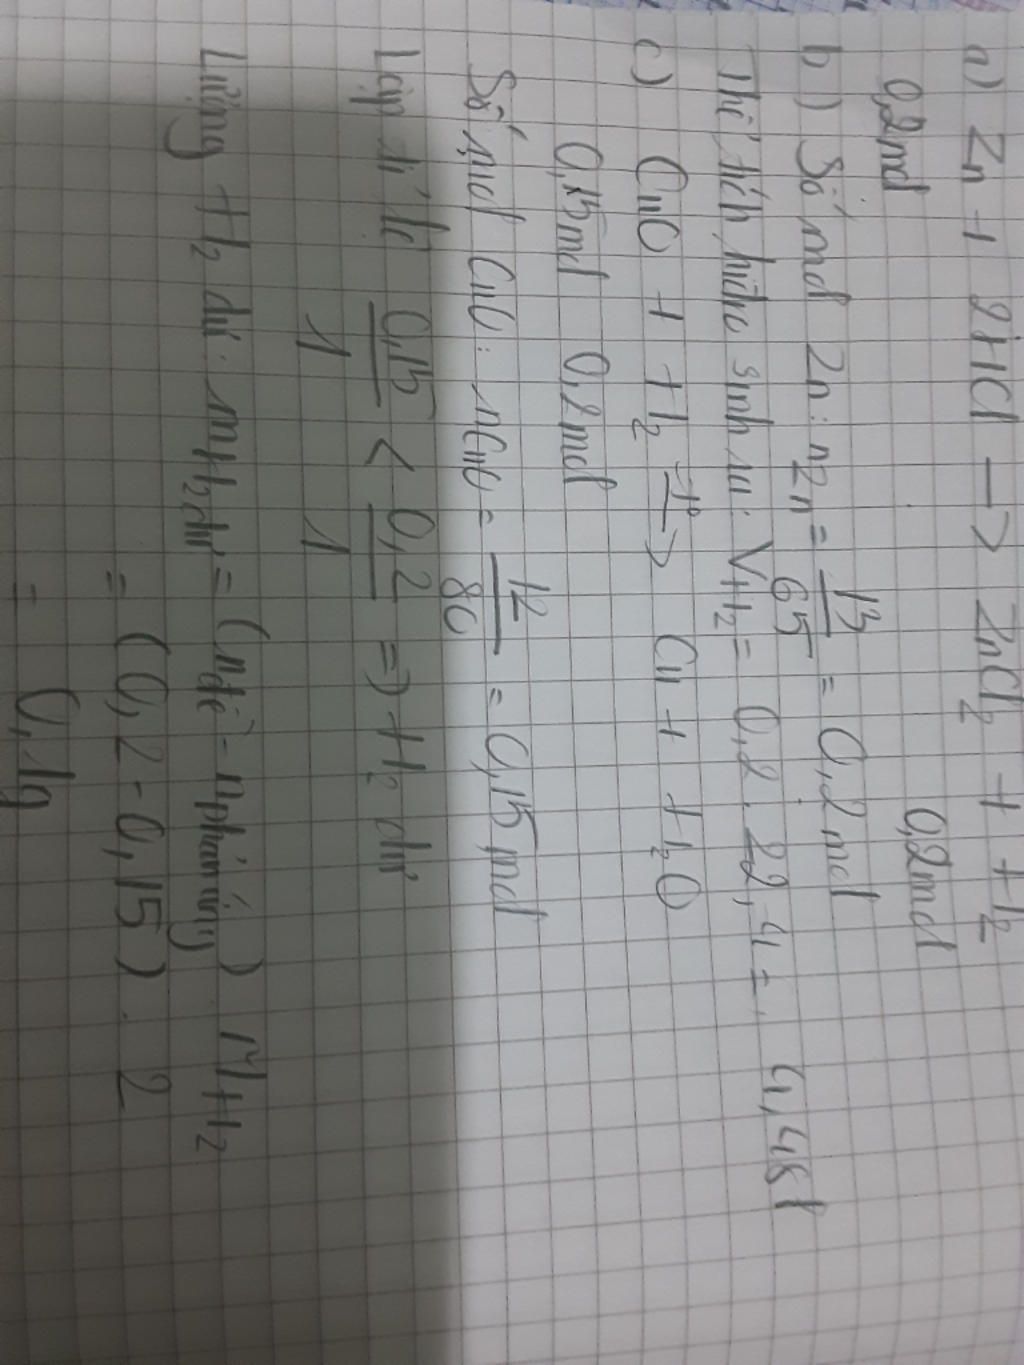 a) Zn + 2HCl → ZnCl₂ + H₂
0,2mol 0,2mol
b) Số mol Zn: nZn = 13/65 = 0,2 mol
Thể tích hiđro sinh ra: VH₂ = 0,2 . 22,4 = 4,48 l
c) CuO + H₂ →(t°) Cu + H₂O
0,15mol 0,2mol
Số mol CuO: nCuO = 12/80 = 0,15 mol
Lập tỉ lệ 0,15/1 < 0,2/1 => H₂ dư
Lượng H₂ dư: mH₂dư = (nđề - nphản ứng) MH₂
= (0,2 - 0,15) . 2
= 0,1g